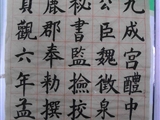 九成宮醴中
公臣魏徵泉
秘書監撿校
郡奉勅撰
貞觀六年孟